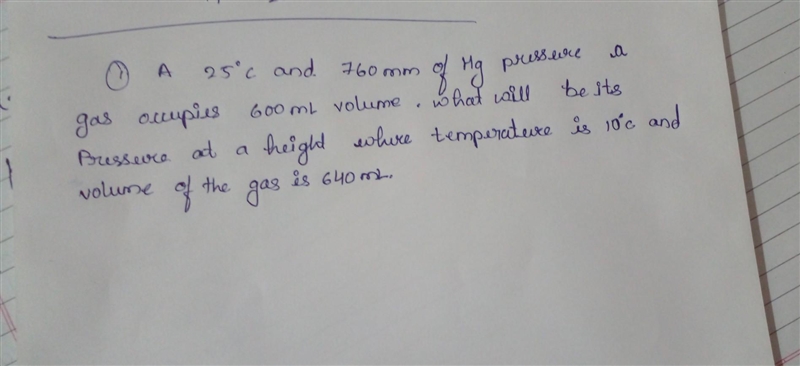 ① A 25°c and 760mm of Hg pressure a
gas occupies 600mL volume. what will be its
Pressure at a height where temperature is 10°c and
volume of the gas is 640mL.